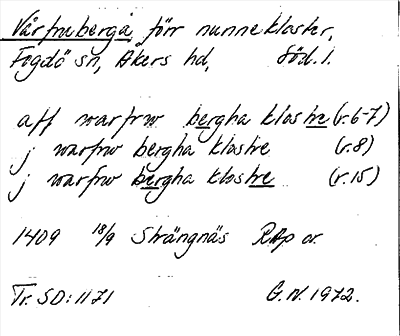 Vårfruberga, förr nunnekloster,
Fogdö sn, Åkers hd, Söd.l.
aff warfrw bergha klostre (r.6-7)
j warfrw bergha klostre (r.8)
j warfrw bergha klostre (r.15)
1409 18/9 Strängnäs RAp or.
Tr. SD:1171 G.N. 1972.